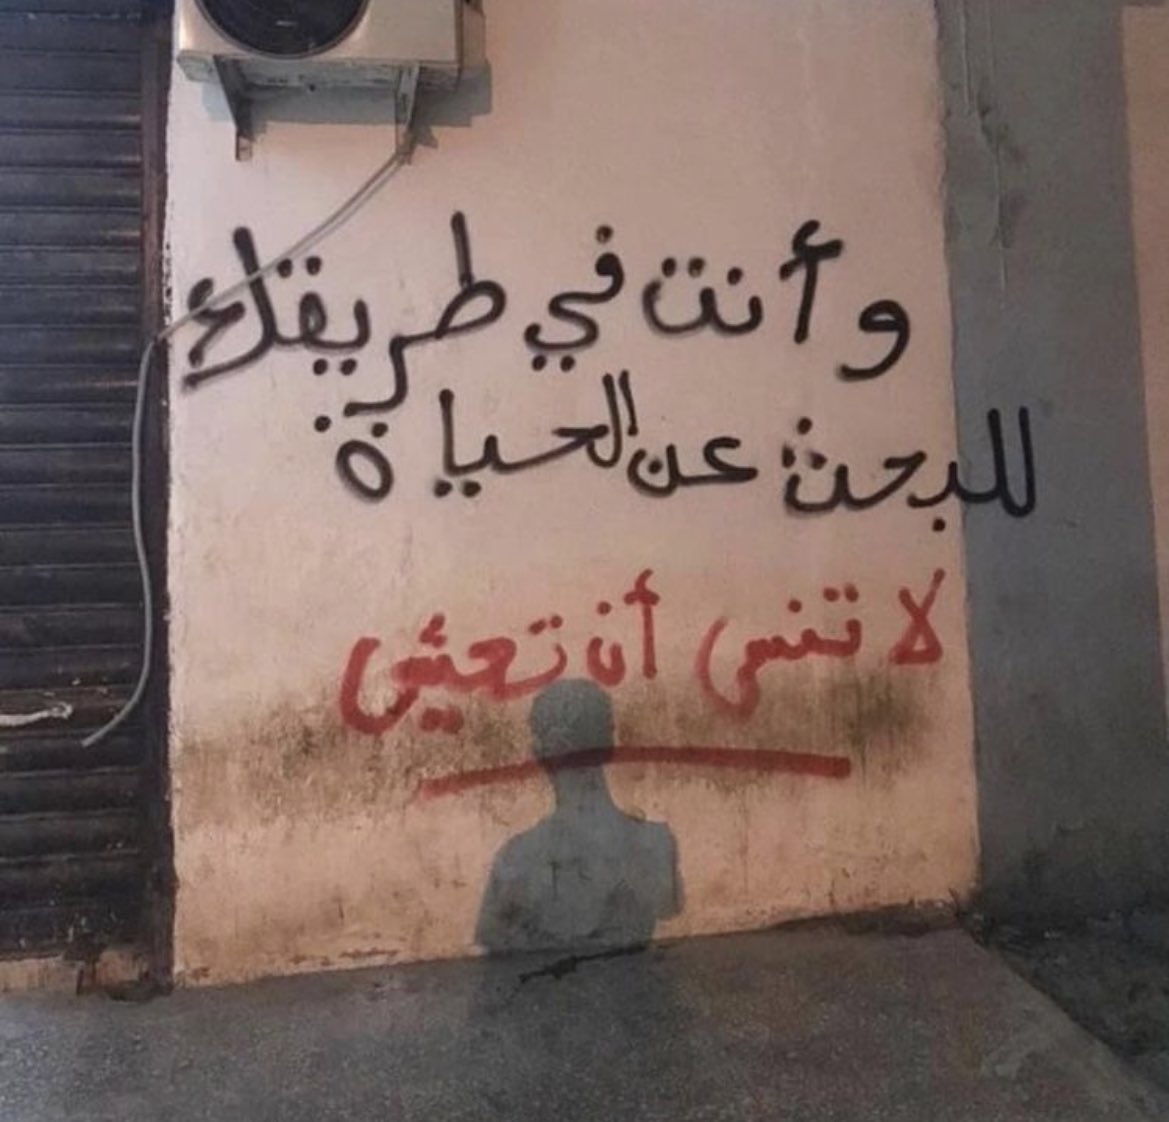 وأنت في طريقك
للبحث عن الحياة
لا تنسى أن تعيش